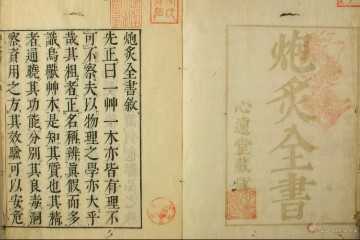 炮炙全書
心遠堂藏
炮炙全書敘
先正曰一艸一木亦皆有理不
可不察夫以物理之學亦大乎
哉其粗者正名稱辨眞假而多
識鳥獸艸木是知其質也其精
者通曉其功能分別其良毒洞
察資用之方其效驗可以安危